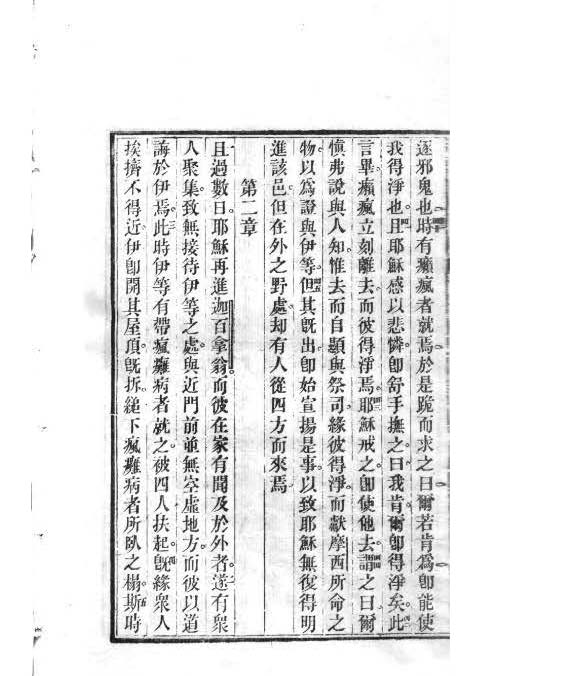 逐邪鬼也時有癩瘋者就焉於是跪而求之曰爾若肯爲卽能使
我得淨也且耶穌感以悲憐卽舒手撫之曰我肯爾卽得淨矣此
言畢癩瘋立刻離去而彼得淨焉耶穌戒之卽使他去謂之曰爾
愼弗說與人知惟去而自顯與祭司緣彼得淨而獻摩西所命之
物以爲證與伊等但其旣出卽始宣揚是事以致耶穌無復得明
進該邑但在外之野處却有人從四方而來焉
第二章
且過數日耶穌再進迦百拿翁而彼在家有聞及於外者遂有衆
人聚集致無接待伊等之處與近門前並無空虛地方而彼以道
誨於伊焉此時伊等有帶瘋癱病者就之彼四人扶起旣緣衆人
挨擠不得近伊卽開其屋頂旣拆縋下瘋癱病者所臥之榻斯時